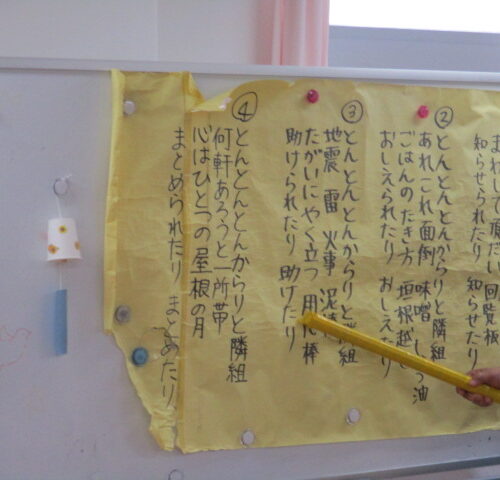 まわして頂だい 回覧板
知らせられたり 知らせたり
②とんとんとんからりと隣組
あれこれ面倒 味噌 しょう油
ごはんのたき方 垣根越し
おしえられたり おしえたり
③とんとんとんからりと隣組
地震 雷 火事 泥棒
たがいにやく立つ 用心棒
助けられたり 助けたり
④とんとんとんからりと隣組
何軒あろうと一所帯
心はひとつの屋根の月
まとめられたり まとめたり